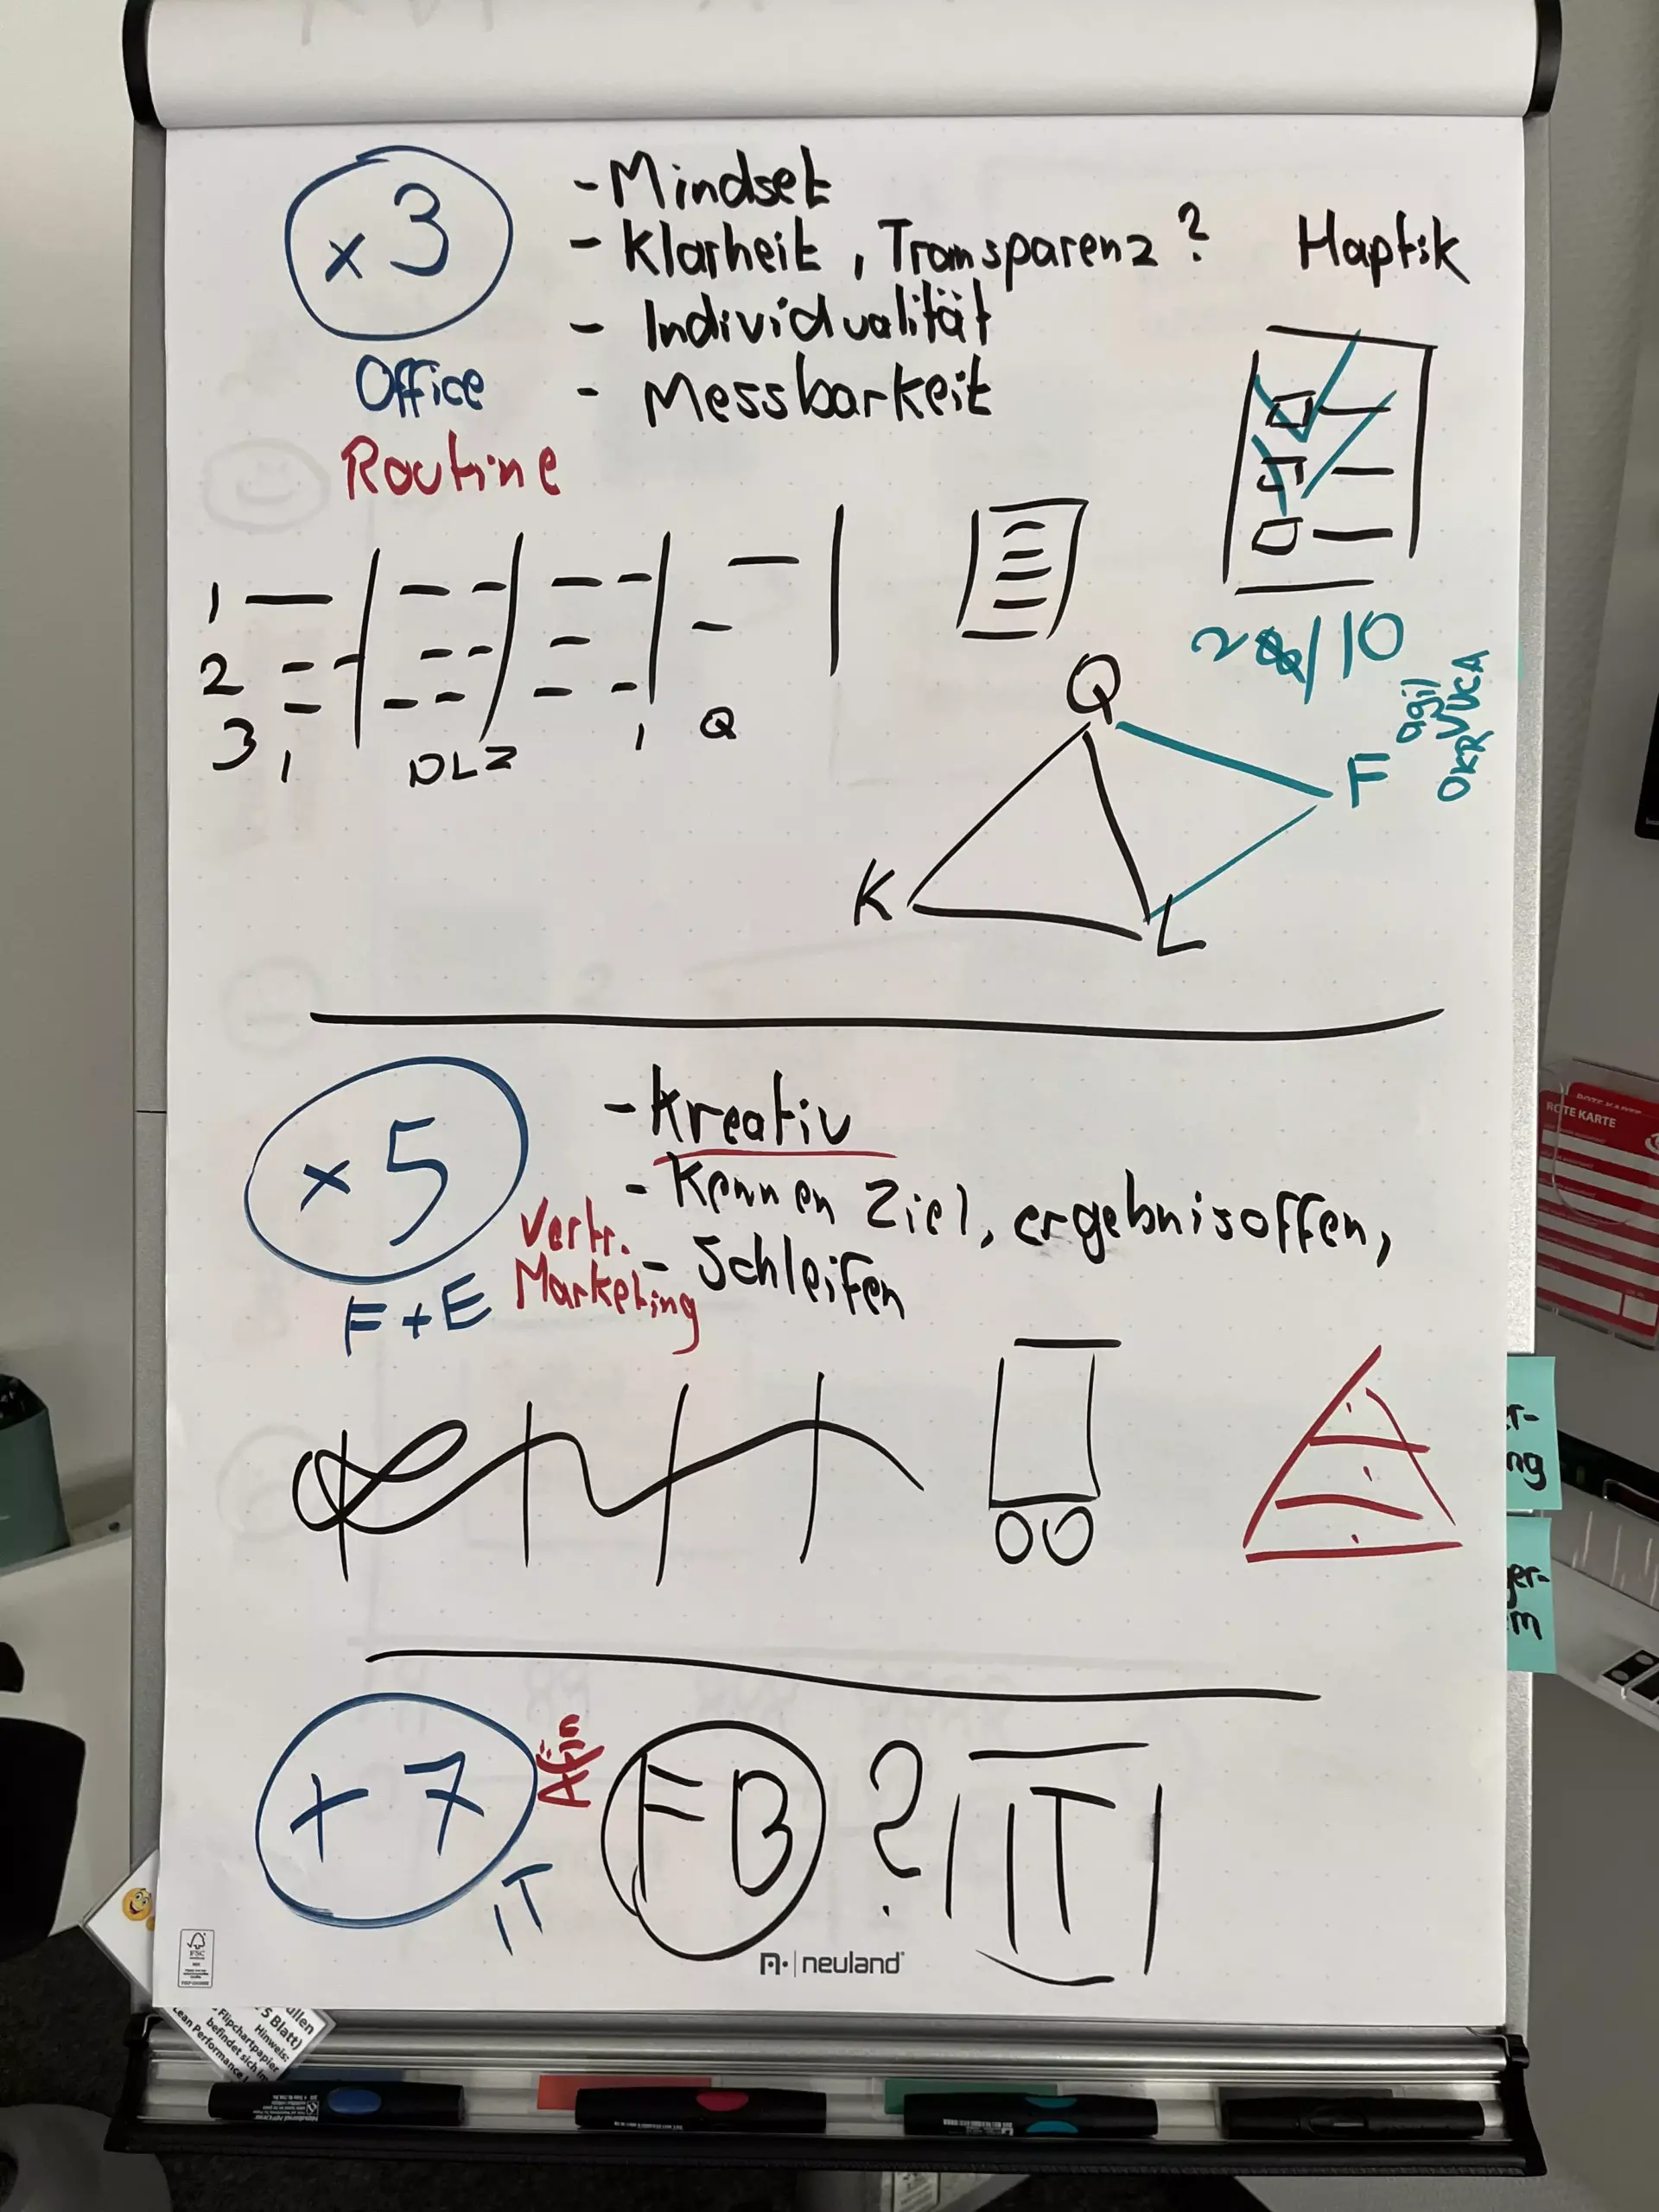 x 3
Office
Routine
- Mindset
- Klarheit, Transparenz? Haptik
- Individualität
- Messbarkeit
1
2
3
1
DLZ
1
Q
2 /10
Q
K
L
F
agil
VUCA
OKR
x 5
F+E
Vertr.
Marketing
- Kreativ
- Kennen Ziel, ergebnisoffen,
- Schleifen
+ 7
IT
Afin
FB ? IT
FSC
neuland
ROTE KARTE
ROTE KARTE
r-
ng
ger-
m
üllen
5 Blatt)
Hinweis:
Flipchartpapier
befindet sich im
Lean Performance